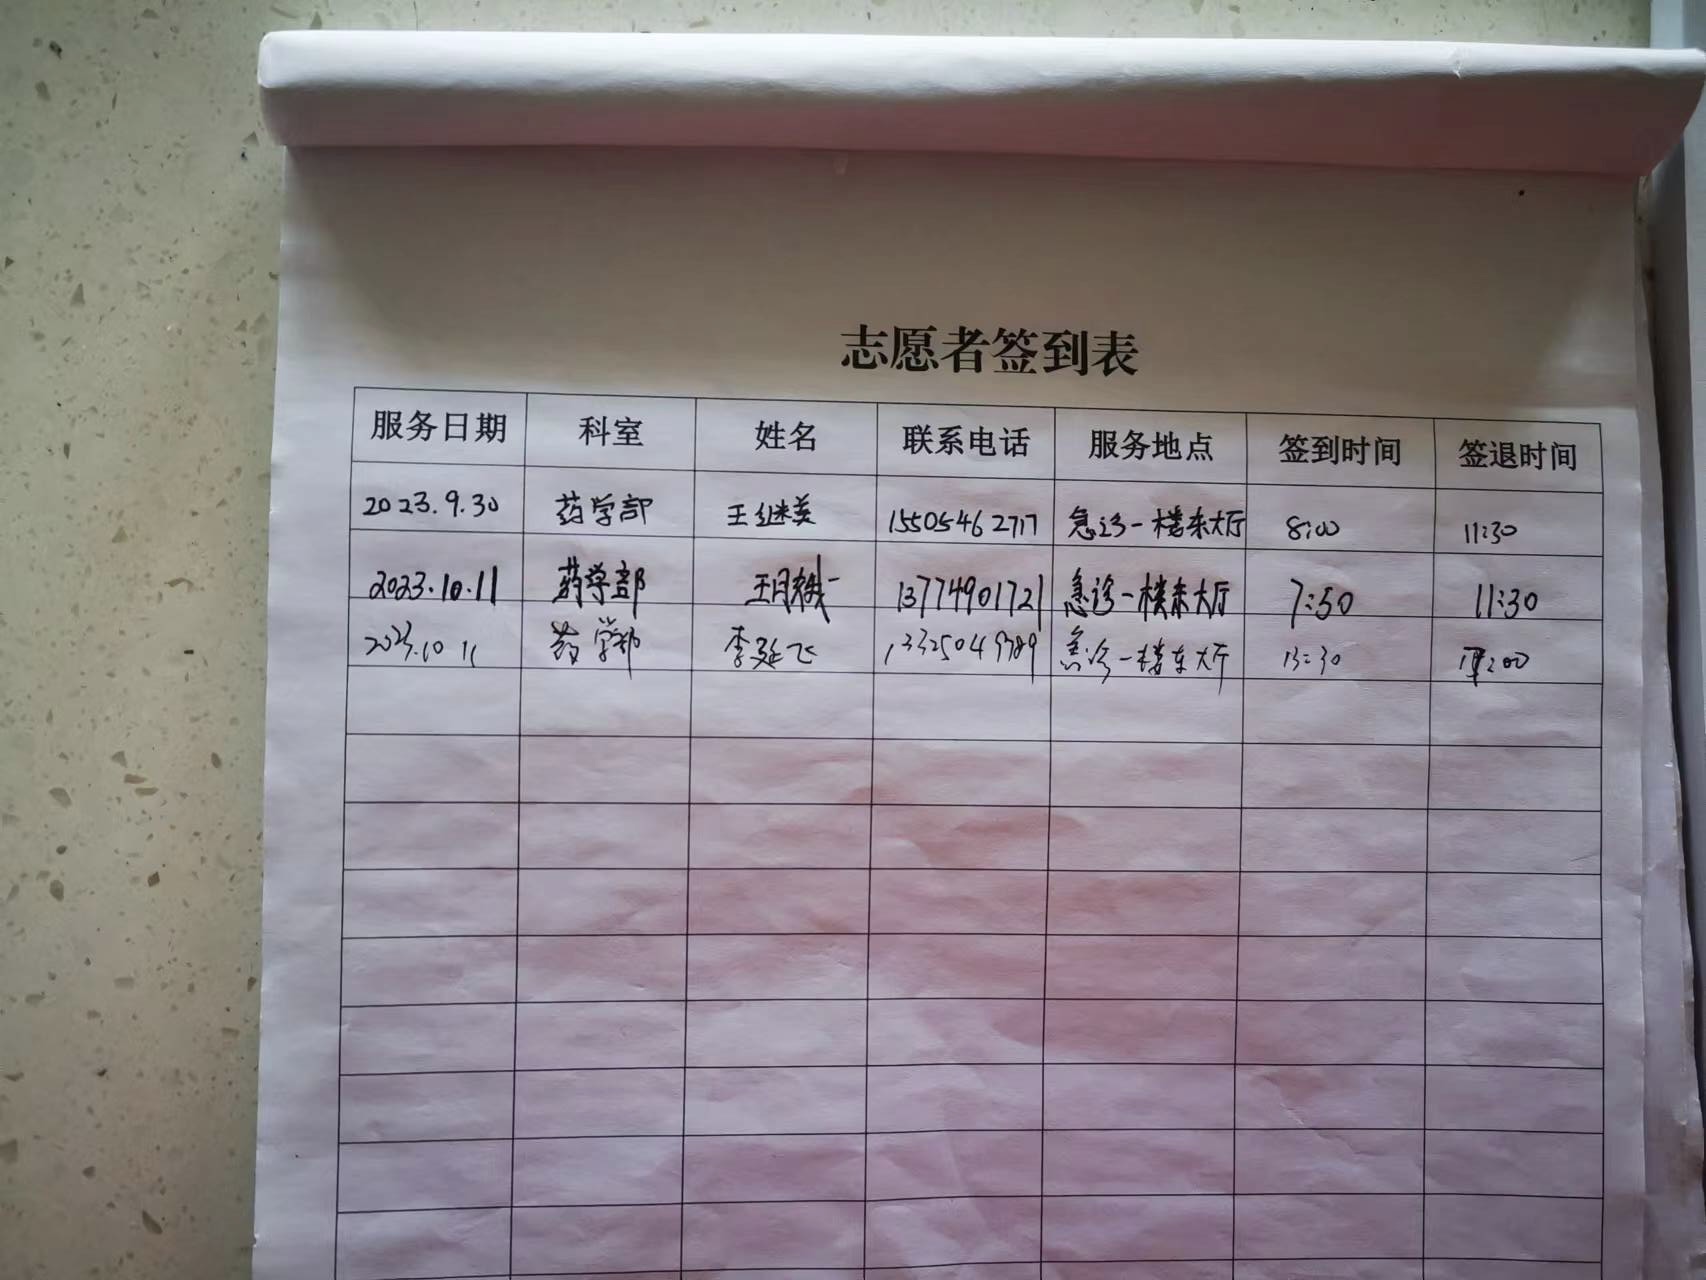 志愿者签到表
服务日期 科室 姓名 联系电话 服务地点 签到时间 签退时间
2023.9.30 药学部 王继美 15505462717 急诊一楼东大厅 8:00 11:30
2023.10.11 药学部 13774901721 急诊一楼东大厅 7:50 11:30
2023.10 11 药学部 李延飞 急诊一楼东大厅 13:30